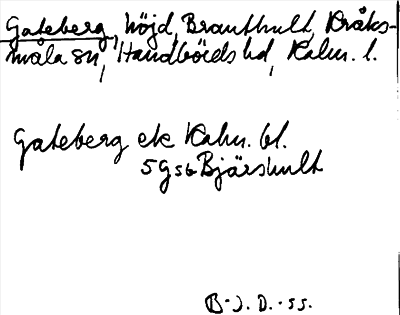 Gateberg, höjd, Branthult, Kråks-
måla sn, Handbörds hd, Kalm. l.
Gateberg ek Kalm. bl.
5 G 5 b Bjärshult
B-J. D. -55.